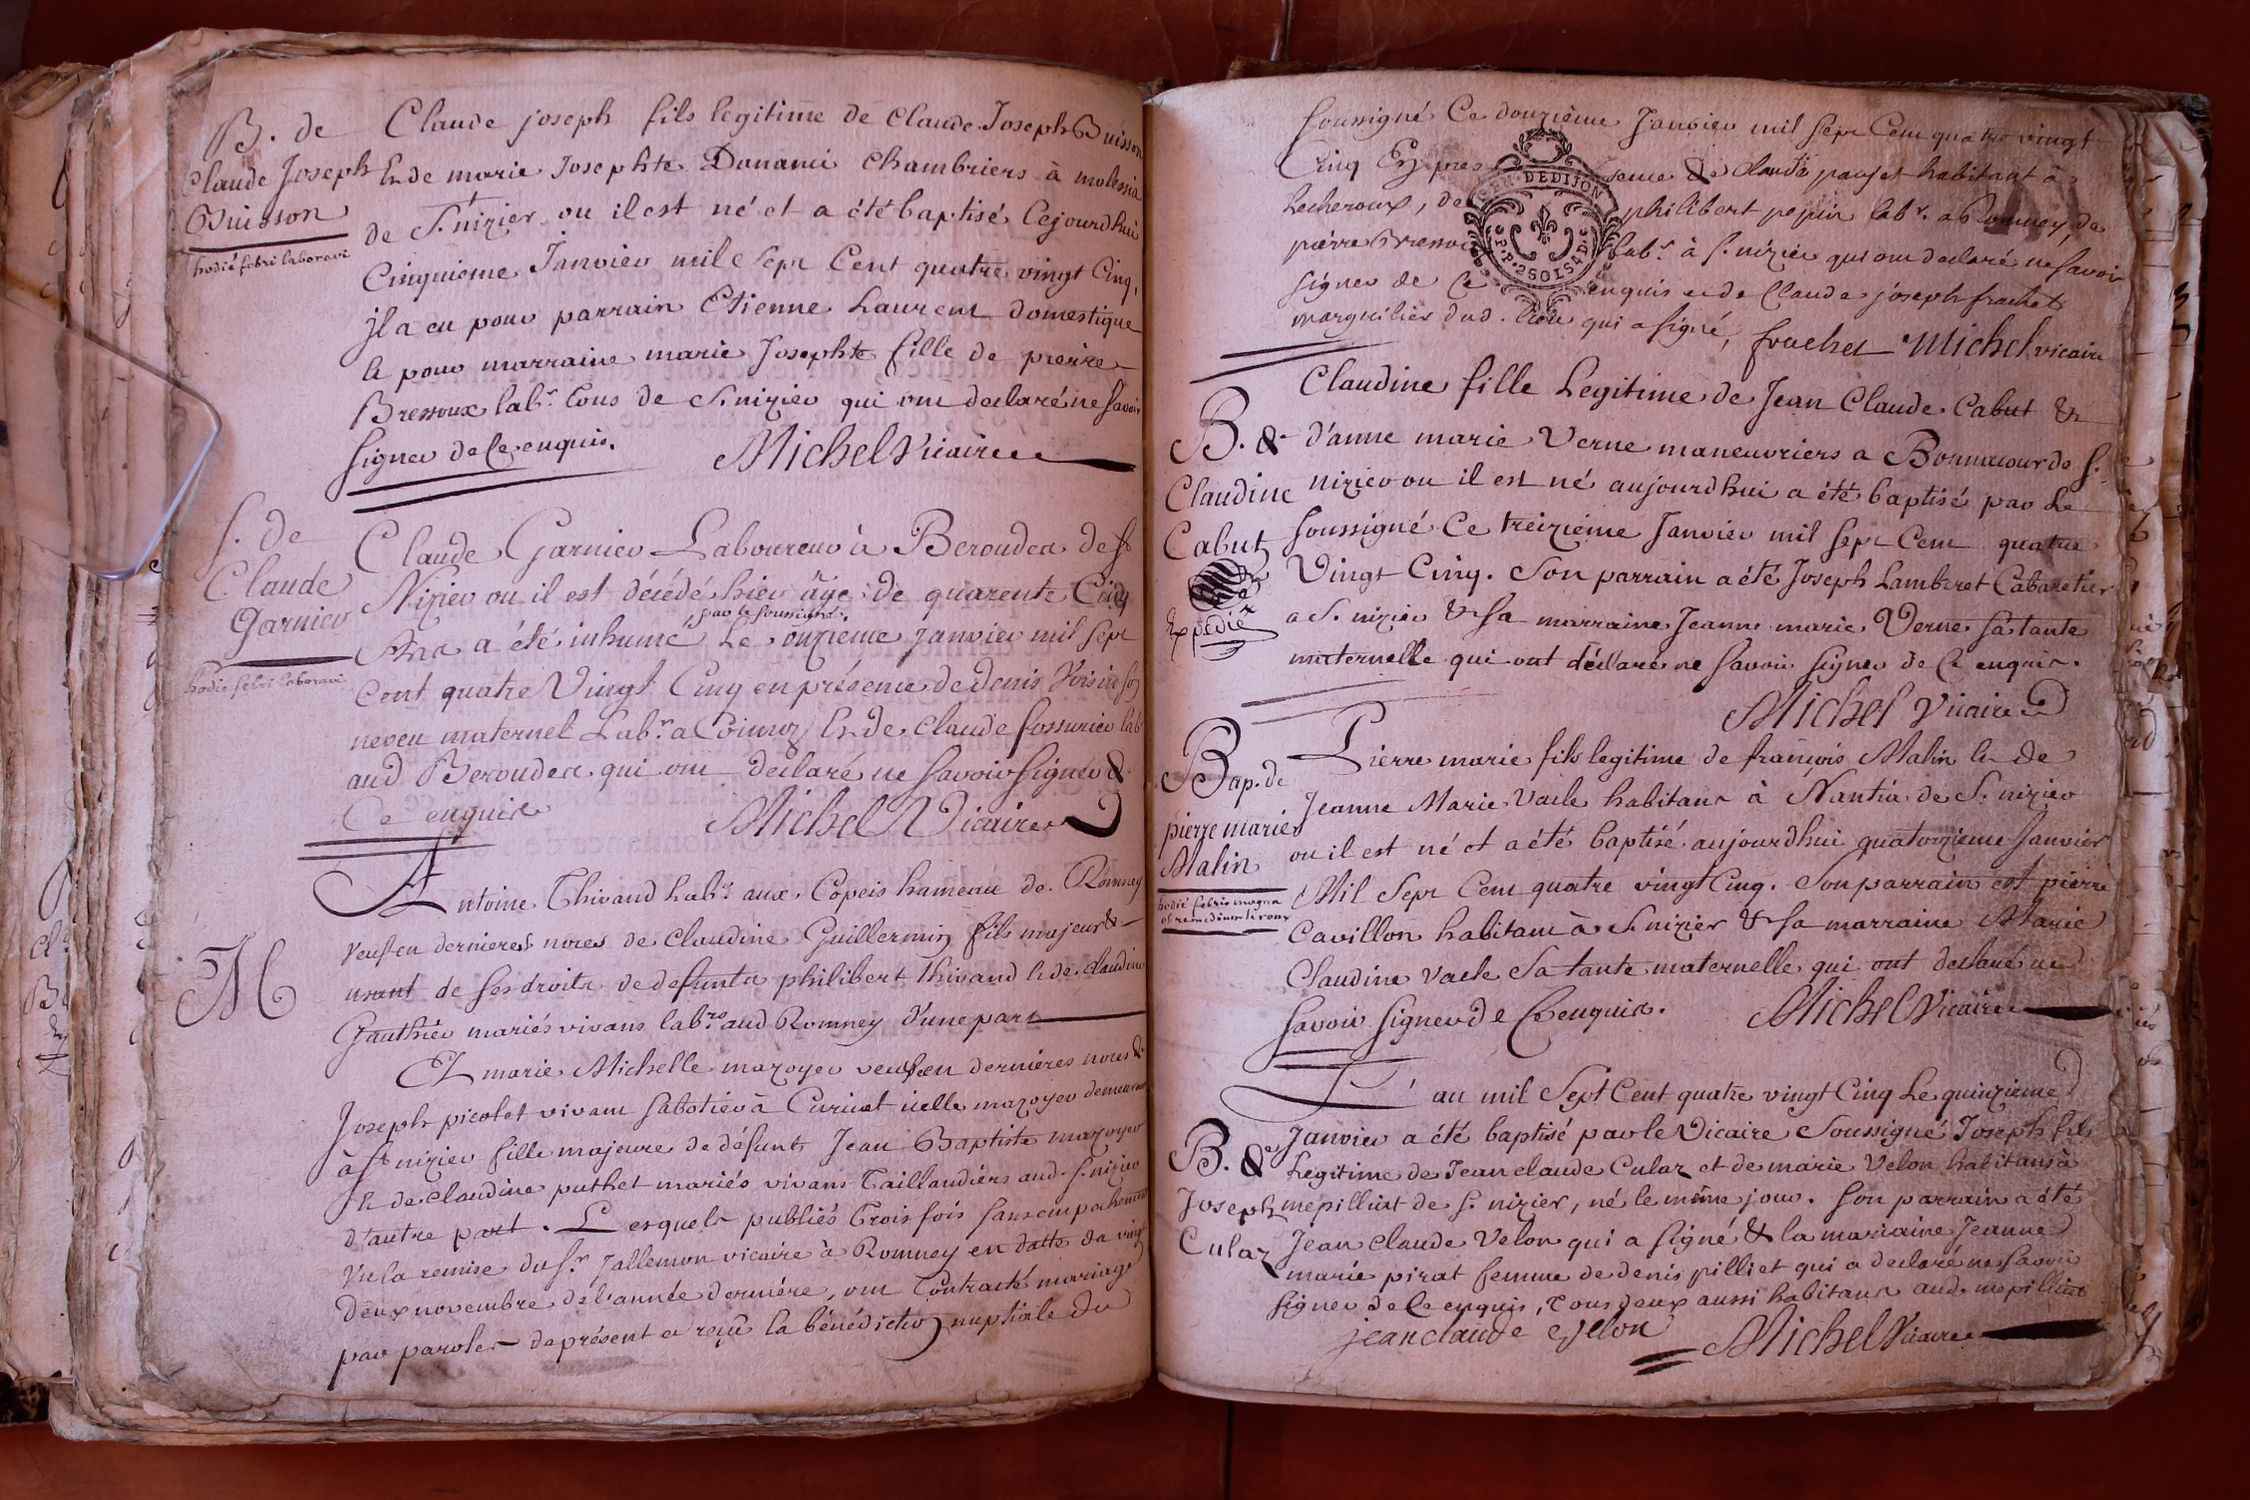 B. de
Claude Joseph
Buisson
hodié febri laboravi
Claude joseph fils legitime de Claude Joseph Buisson
Et de marie Josephte Danami chambriers à molessia
de St. nizier ou il est né et a été baptisé Cejourdhui
Cinquieme Janvier mil Sept Cent quatre vingt Cinq,
jl a eu pour parrain Etienne Laurent domestique
& pour marraine marie Josephte fille de pierre
Bressoux labr. tous de St. nizier qui ont declaré ne Savoir
Signer de Ce enquis.
Michel Vicaire
S. de
Claude
Garnier
hodie febri laboravi
Claude Garnier Laboureur à Berouden de St
Nizier ou il est décédé hier âgé de quarente Cinq
par le soussigné
Ans a été inhumé Le onzieme janvier mil sept
Cent quatre Vingt Cinq en présence de denis Voisin son
neveu maternel Labr. a Coinuoz Et de Claude fossurier lab
aud Berouden qui ont declaré ne Savoir Signer de
Ce enquis
Michel Vicaire
M
Antoine Thivand labr. aux Copeis hameau de Romney
veuf en dernieres noces de Claudine Guillermin fils majeur &
usant de ses droits de defunts philibert thivand & de claudine
Gauthier mariés vivans labrs. aud Romney d'une part
Et marie Michelle mazoyer veuve en dernieres noces de
Joseph picolet vivant Sabotier à Curciat icelle mazoyer demeurant
à St nizier fille majeure de défunts Jean Baptiste mazoyer
& de claudine puthet mariés vivans Taillandiers aud. St. nizier
d'autre part. Lesquels publiés Trois fois sans empechement
Vu la remise du Sr. Jallemon vicaire à Romney en datte da vingt
Deux novembre de l'année derniére, ont Contracté mariage
par paroles de présent et reçu la bénédiction nuptiale du
soussigné Ce douzième Janvier mil Sept Cent quatre vingt
GEN. DE DIJON
P.P. 2 SOLS 4 D.
Cinq En presence de Claude panjet habitant à
Lecheroux, de philibert pepin labr. a Romney, de
pierre Bressoux labr. à St. nizier qui ont declaré ne Savoir
signer de Ce enquis et de Claude joseph frachet
marguilier dud. lieu qui a signé, frachet Michel vicaire
B. de
Claudine
Cabut
Expedié
Claudine fille Legitime de Jean Claude Cabut &
d'anne marie Verne maneuvriers a Bormacour de St.
nizier ou il est né aujourdhui a été baptisé par Le
soussigné Ce treizieme Janvier mil Sept Cent quatre
Vingt Cinq. Son parrain a été Joseph Lamberet Cabaretier
a St. nizier & Sa marraine Jeanne marie Verne Sa tante
maternelle qui ont déclaré ne Savoir Signer de Ce enquis.
Michel Vicaire
Bap. de
pierre marie
Malin
hodié febris magna
Pierre marie fils legitime de françois Malin & de
Jeanne Marie Vaile habitans à Nantia de St. nizier
ou il est né et a été baptisé aujourdhui quatorzieme Janvier
Mil Sept Cent quatre vingt Cinq. Son parrain est pierre
Cavillon habitant à St. nizier & Sa marraine Marie
Claudine Vaile Sa tante maternelle qui ont declaré ne
Savoir Signer de Ce enquis.
Michel Vicaire
B. de
Joseph
Culaz
L'an mil Sept Cent quatre vingt Cinq Le quinzieme
Janvier a été baptisé par le Vicaire Soussigné Joseph fils
Legitime de Jean claude Culaz et de marie Velon habitans à
mepilliat de St. nizier, né le même jour. Son parrain a été
Jean claude Velon qui a Signé & la marraine Jeanne
marie pirat femme de denis pilliet qui a declaré ne Savoir
Signer de Ce enquis, Tous deux aussi habitans aud. mepilliat
jean claude velon
Michel Vicaire